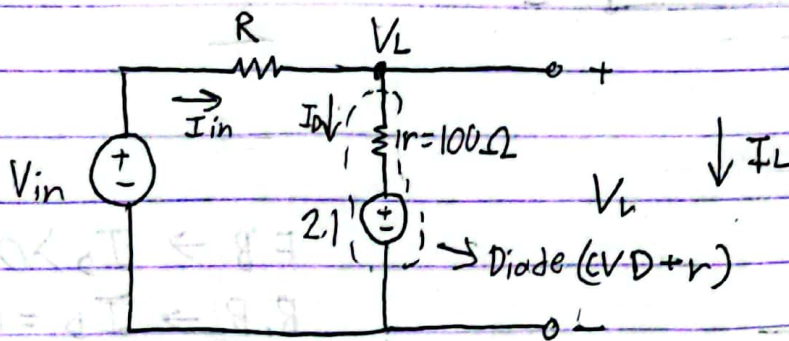 R
VL
+
Iin
ID
r=100Ω
IL
Vin
+
-
2.1
+
-
VL
Diode (CVD+r)
-